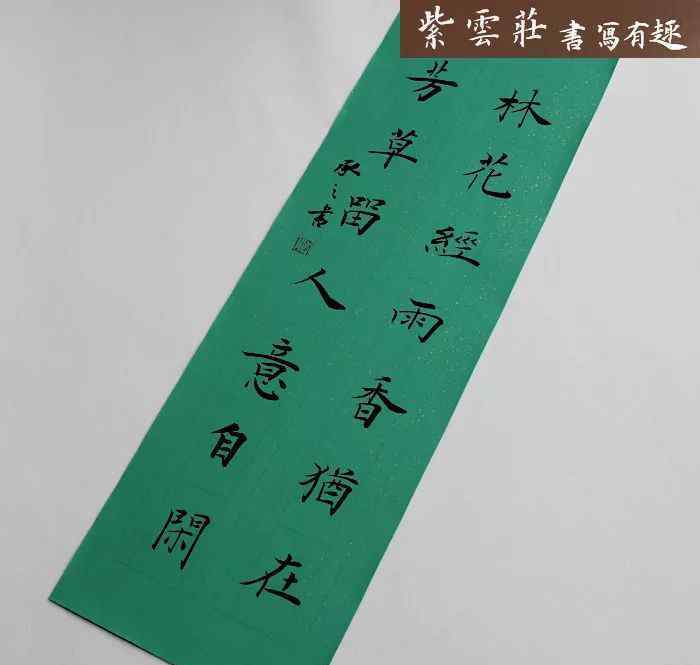 紫雲莊 書寫有趣
林花經雨香猶在
芳草留人意自閑
承之書